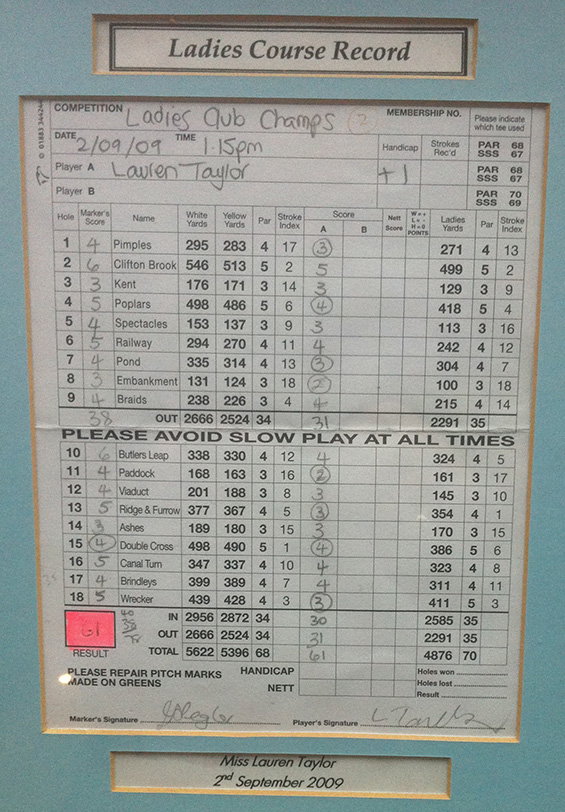 Ladies Course Record
COMPETITION Ladies Club Champs MEMBERSHIP NO. Please indicate which tee used
DATE 2/09/09 TIME 1.15pm Handicap Strokes Rec'd PAR 68 SSS 67
Player A Lauren Taylor +1 PAR 68 SSS 67
Player B PAR 70 SSS 69
Hole Marker's Score Name White Yards Yellow Yards Par Stroke Index Score A B Nett Score W = + L = - H = 0 POINTS Ladies Yards Par Stroke Index
1 4 Pimples 295 283 4 17 3 271 4 13
2 6 Clifton Brook 546 513 5 2 5 499 5 2
3 3 Kent 176 171 3 14 3 129 3 9
4 5 Poplars 498 486 5 6 4 418 5 4
5 4 Spectacles 153 137 3 9 3 113 3 16
6 5 Railway 294 270 4 11 4 242 4 12
7 4 Pond 335 314 4 13 3 304 4 7
8 3 Embankment 131 124 3 18 2 100 3 18
9 4 Braids 238 226 3 4 4 215 4 14
38 OUT 2666 2524 34 31 2291 35
PLEASE AVOID SLOW PLAY AT ALL TIMES
10 6 Butlers Leap 338 330 4 12 4 324 4 5
11 4 Paddock 168 163 3 16 2 161 3 17
12 4 Viaduct 201 188 3 8 3 145 3 10
13 5 Ridge & Furrow 377 367 4 5 3 354 4 1
14 3 Ashes 189 180 3 15 3 170 3 15
15 4 Double Cross 498 490 5 1 4 386 5 6
16 5 Canal Turn 347 337 4 10 4 323 4 8
17 4 Brindleys 399 389 4 7 4 311 4 11
18 5 Wrecker 439 428 4 3 3 411 5 3
61 40 38 IN 2956 2872 34 30 2585 35
OUT 2666 2524 34 31 2291 35
RESULT TOTAL 5622 5396 68 61 4876 70
PLEASE REPAIR PITCH MARKS MADE ON GREENS HANDICAP Holes won
NETT Holes lost
Result
Marker's Signature Player's Signature
Miss Lauren Taylor
2nd September 2009